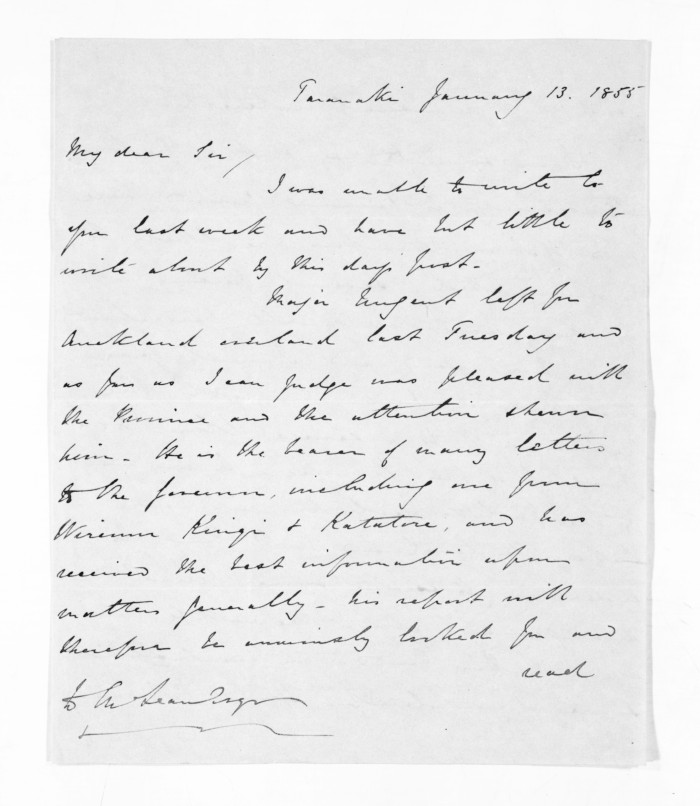 Taranaki January 13. 1855
My dear Sir,
I was unable to write to
you last week and have but little to
write about by this day's post.
Major Nugent left for
Auckland overland last Tuesday and
as far as I can judge was pleased with
the Province and the attention shewn
him - He is the bearer of many letters
to the Governor, including one from
Wiremu Kingi & Katatore, and has
received the best information upon
matters generally - his report will
therefore be anxiously looked for and
read
D McLean Esqr